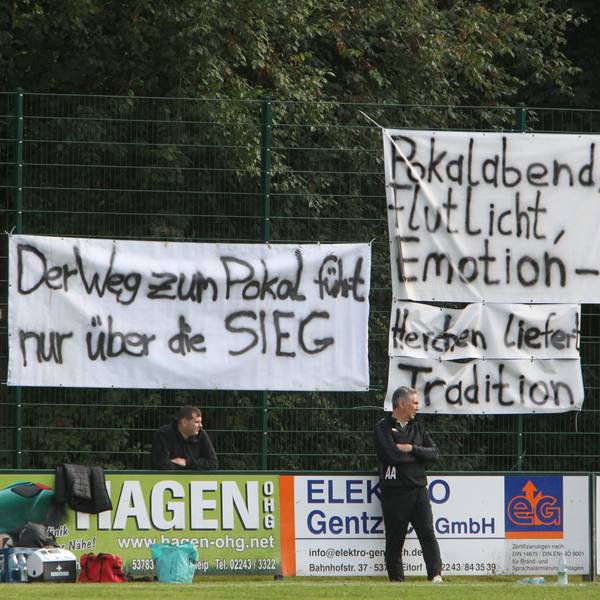 Der Weg zum Pokal führt
nur über die SIEG
Pokalabend,
Flutlicht,
Emotion-
Herchen liefert
Tradition
HAGEN OHG
Nähe!
www.hagen-ohg.net
53783
Tel. 02243/3322
ELEK O
Gentz GmbH
info@elektro-gen ch.de
Bahnhofstr. 37 · 537 Eitorf 02243/843539
eG
Zertifizierungen nach
DIN 14675 / DIN EN ISO 9001
für Brand- und
Sprachalarmierung Anlagen
AA